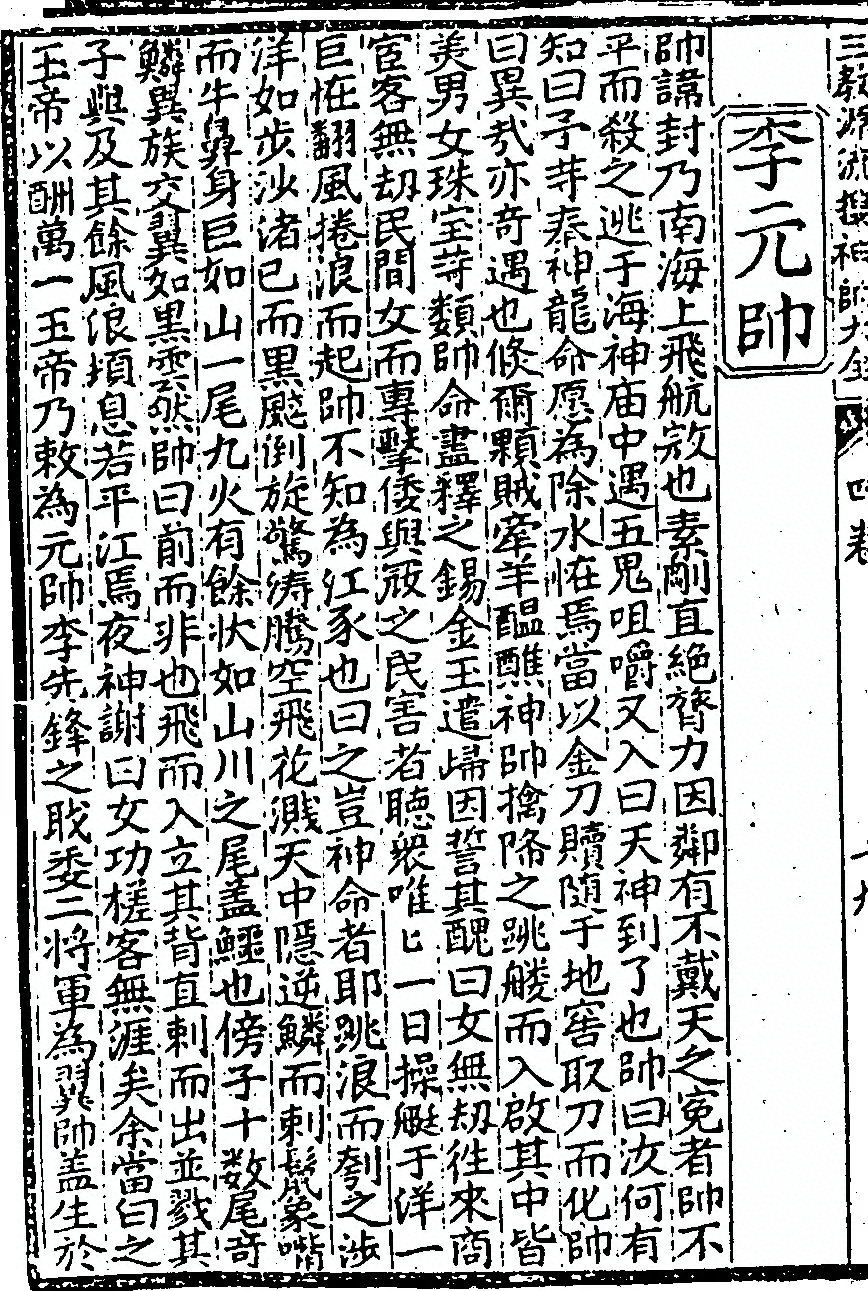 三教源流搜神大全 四卷 十九
李元帥
帥諱封乃南海上飛航寇也素剮直絶膂力因鄰有不戴天之寃者帥不
平而殺之逃于海神庙中遇五鬼咀嚼又入曰天神到了也帥曰汝何有
知曰予䓁奉神龍命愿為除水恠焉當以金刀贖随于地窖取刀而化帥
曰異㢤亦奇遇也倐爾顆賊牽羊醖醮神帥擒降之跳艛而入啟其中皆
美男女珠宝䓁類帥命盡釋之錫金玉遣歸因誓其醜曰女無刼徃來商
宦客無刼民間女而專擊倭與㓂之民害者聽衆唯匕一日操艇于洋一
巨恠翻風捲浪而起帥不知為江豖也曰之豈神命者耶跳浪而刳之涉
洋如步沙渚已而黒颩倒旋驚涛騰空飛花濺天中隱逆鱗而刺鬣象嘴
而牛鼻身巨如山一尾九火有餘状如山川之尾盖鱷也傍子十数尾奇
鱗異族交翼如黒雲然帥曰前而非也飛而入立其背直刺而出並戮其
子與及其餘風浪頃息若平江焉夜神謝曰女功槎客無涯矣余當曰之
玉帝以酬萬一玉帝乃敕為元帥李先鋒之戝委二将軍為翼帥盖生於